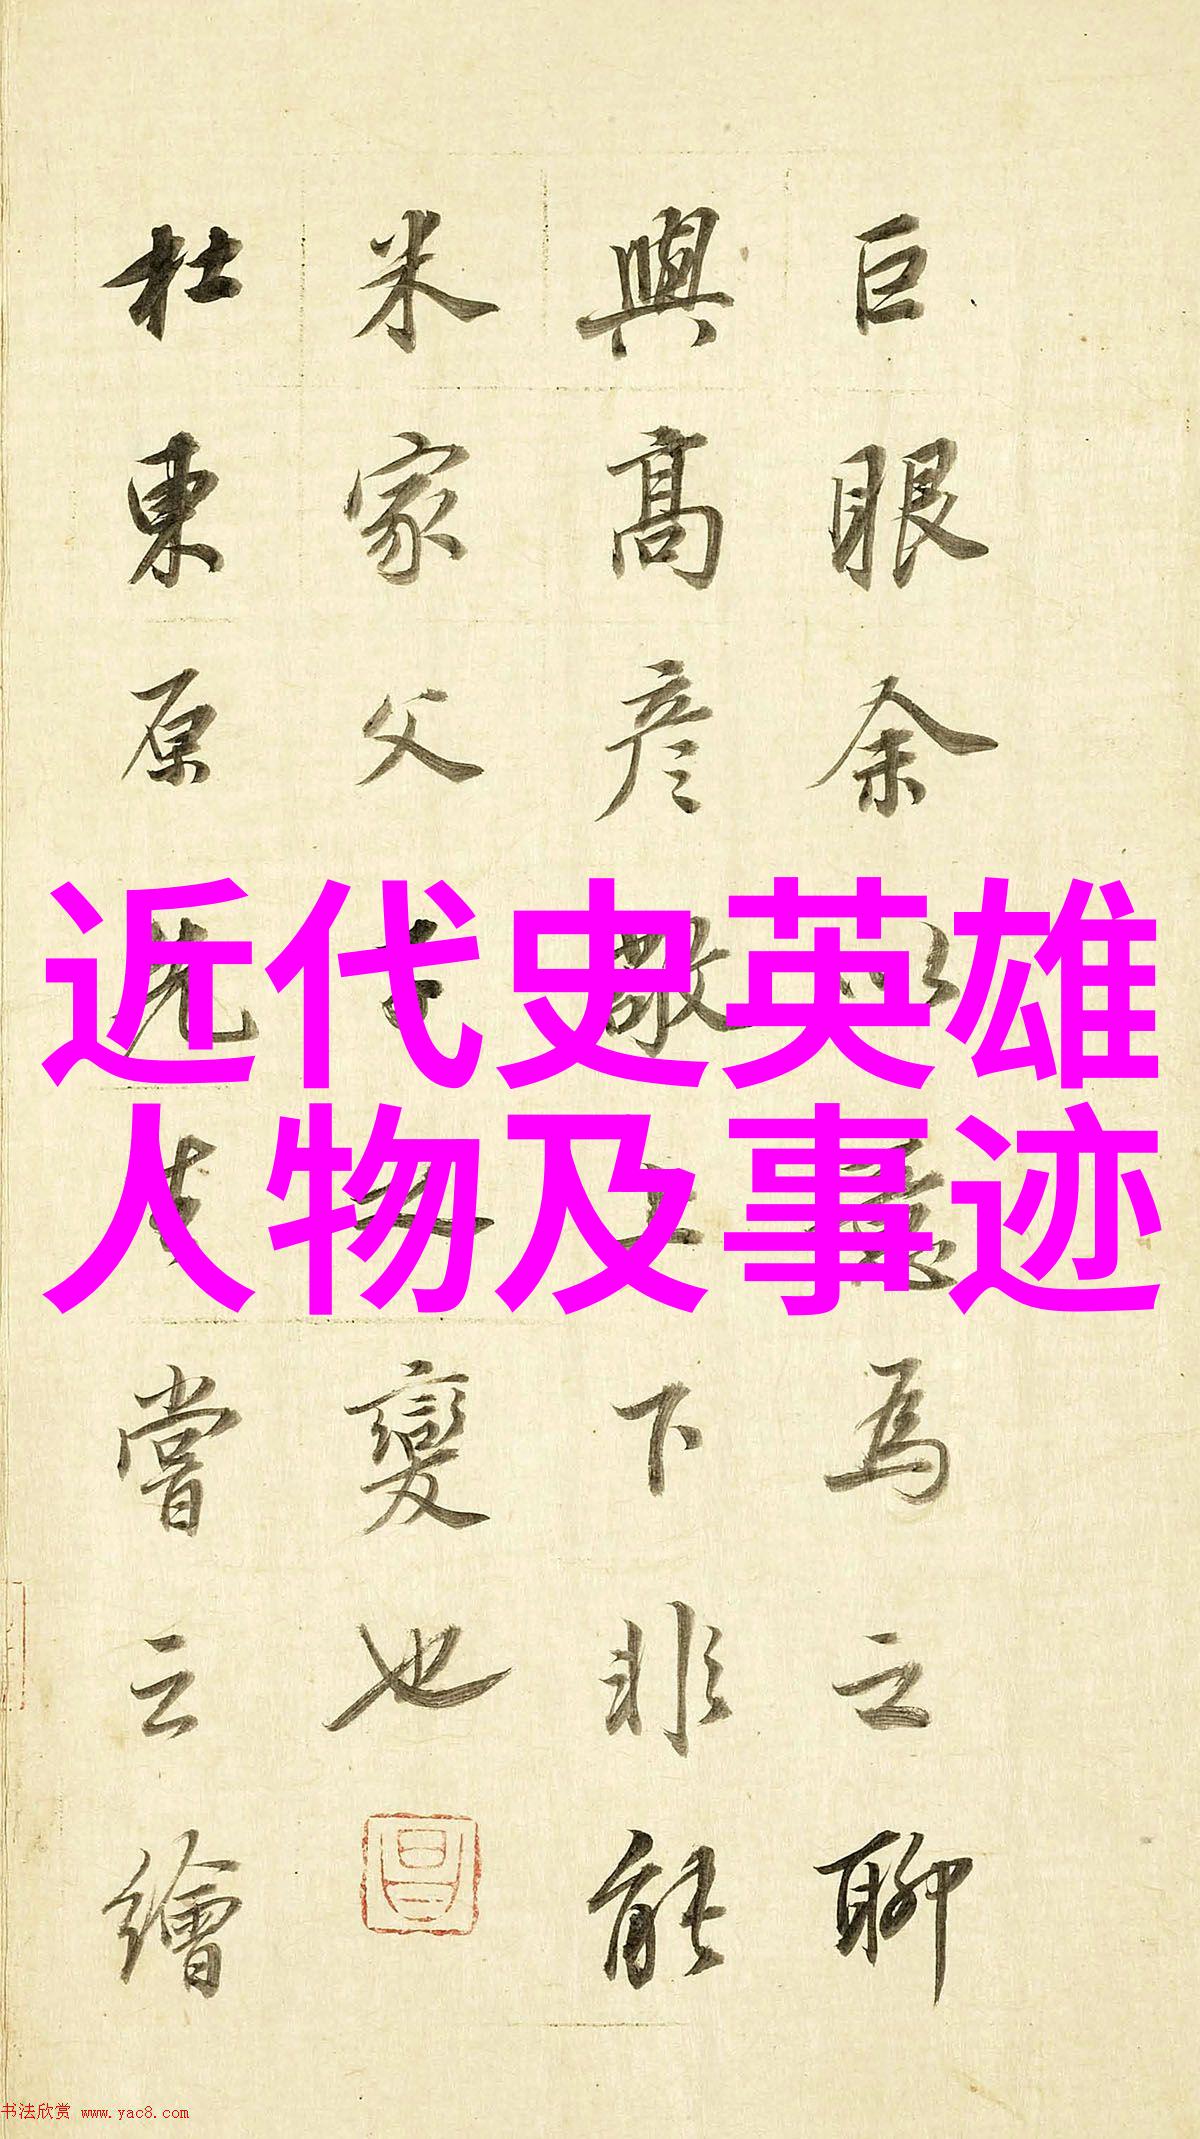 巨眼余以意為之聊
與高彦敬上下非能
米家父子之變也
杜東原先生嘗云繪
近代史英雄
人物及事迹
书法欣赏 www.yac8.com